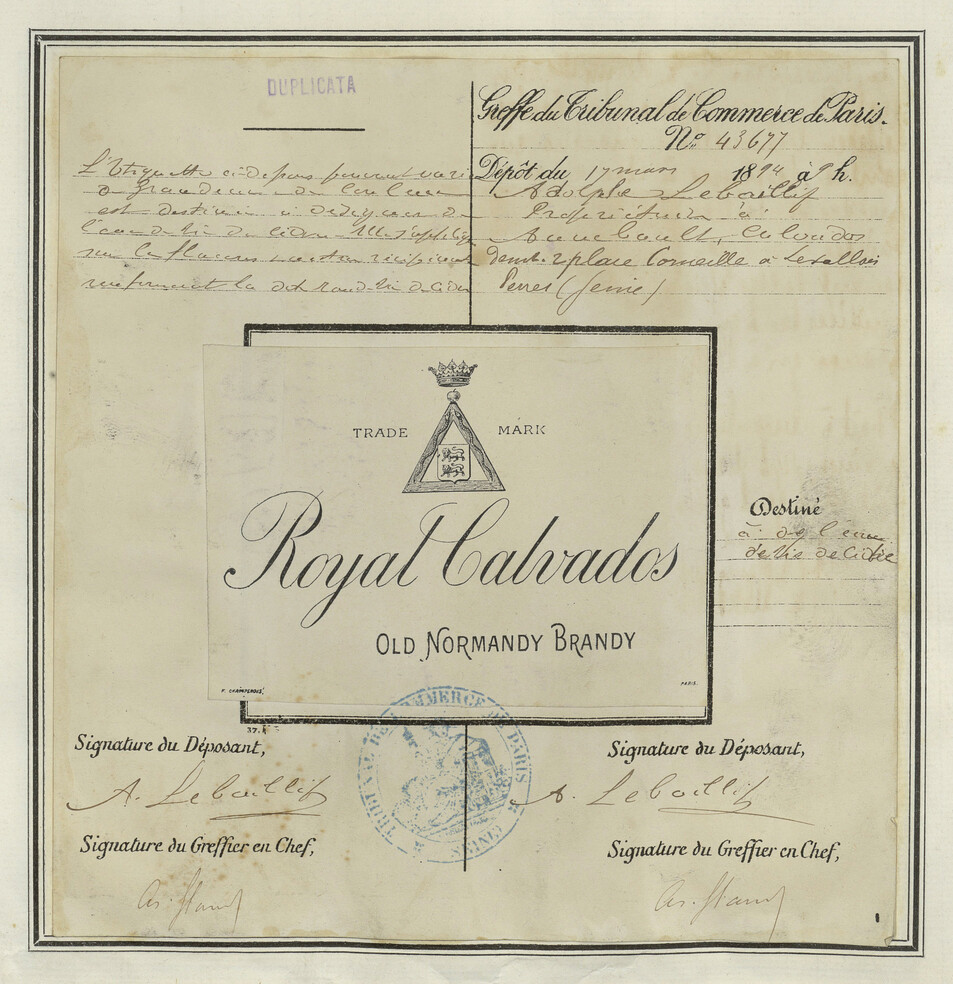 DUPLICATA
L'Etiquette ci-dessus pouvant varier
de grandeur et de couleur
est destinée à désigner de
l'eau de vie de cidre. Elle s'applique
sur les flacons et autres récipients
renfermant la dite eau-de-vie de cidre
Greffe du Tribunal de Commerce de Paris.
No. 43677
Dépôt du 17 mars 1894 à 9 h.
Adolphe Lebaillif
Propriétaire à
Annebault, Calvados
demt. 2 place Corneille à Levallois
Perret (Seine)
TRADE MARK
Royal Calvados
OLD NORMANDY BRANDY
F. CHAMPENOIS,
PARIS.
Destiné
à l'eau
de vie de cidre
37.
TRIBUNAL DE COMMERCE DE PARIS
SEINE
Signature du Déposant,
A. Lebaillif
Signature du Greffier en Chef,
Signature du Déposant,
A. Lebaillif
Signature du Greffier en Chef,